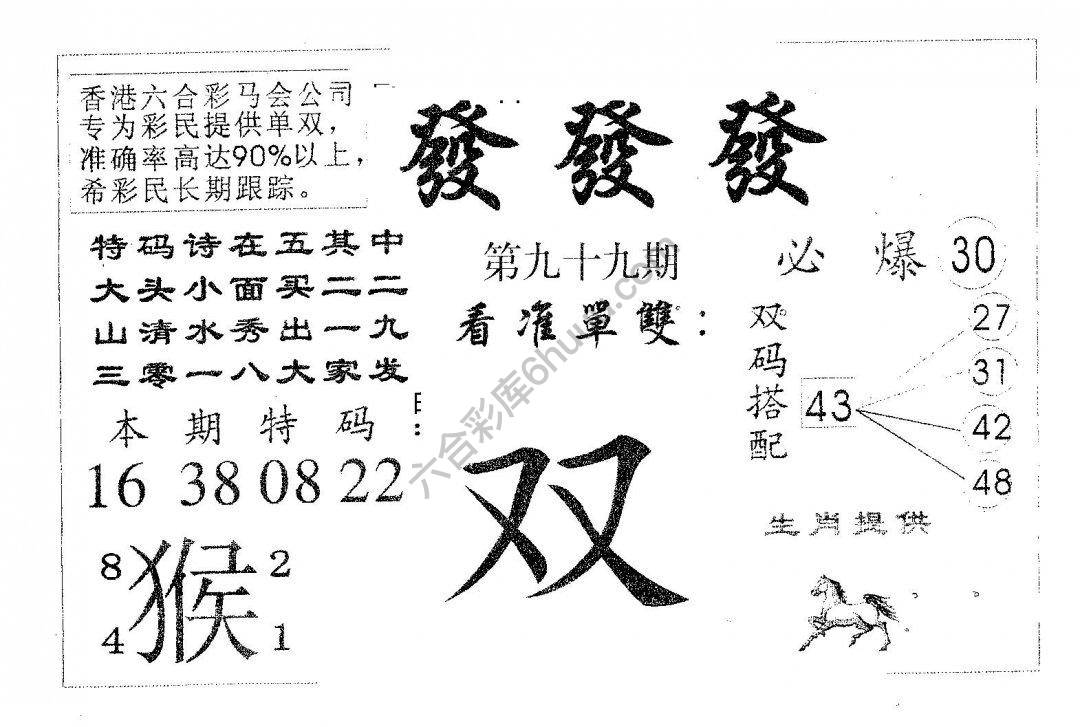 香港六合彩马会公司
专为彩民提供单双，
准确率高达90%以上，
希彩民长期跟踪。
發 發 發
特码诗在五其中
大头小面买二二
山清水秀出一九
三零一八大家发
第九十九期
看准單雙：
双
必爆 30
双码搭配
43
27
31
42
48
本期特码：
16 38 08 22
猴
8 2
4 1
生肖提供
六合彩库6huw.com